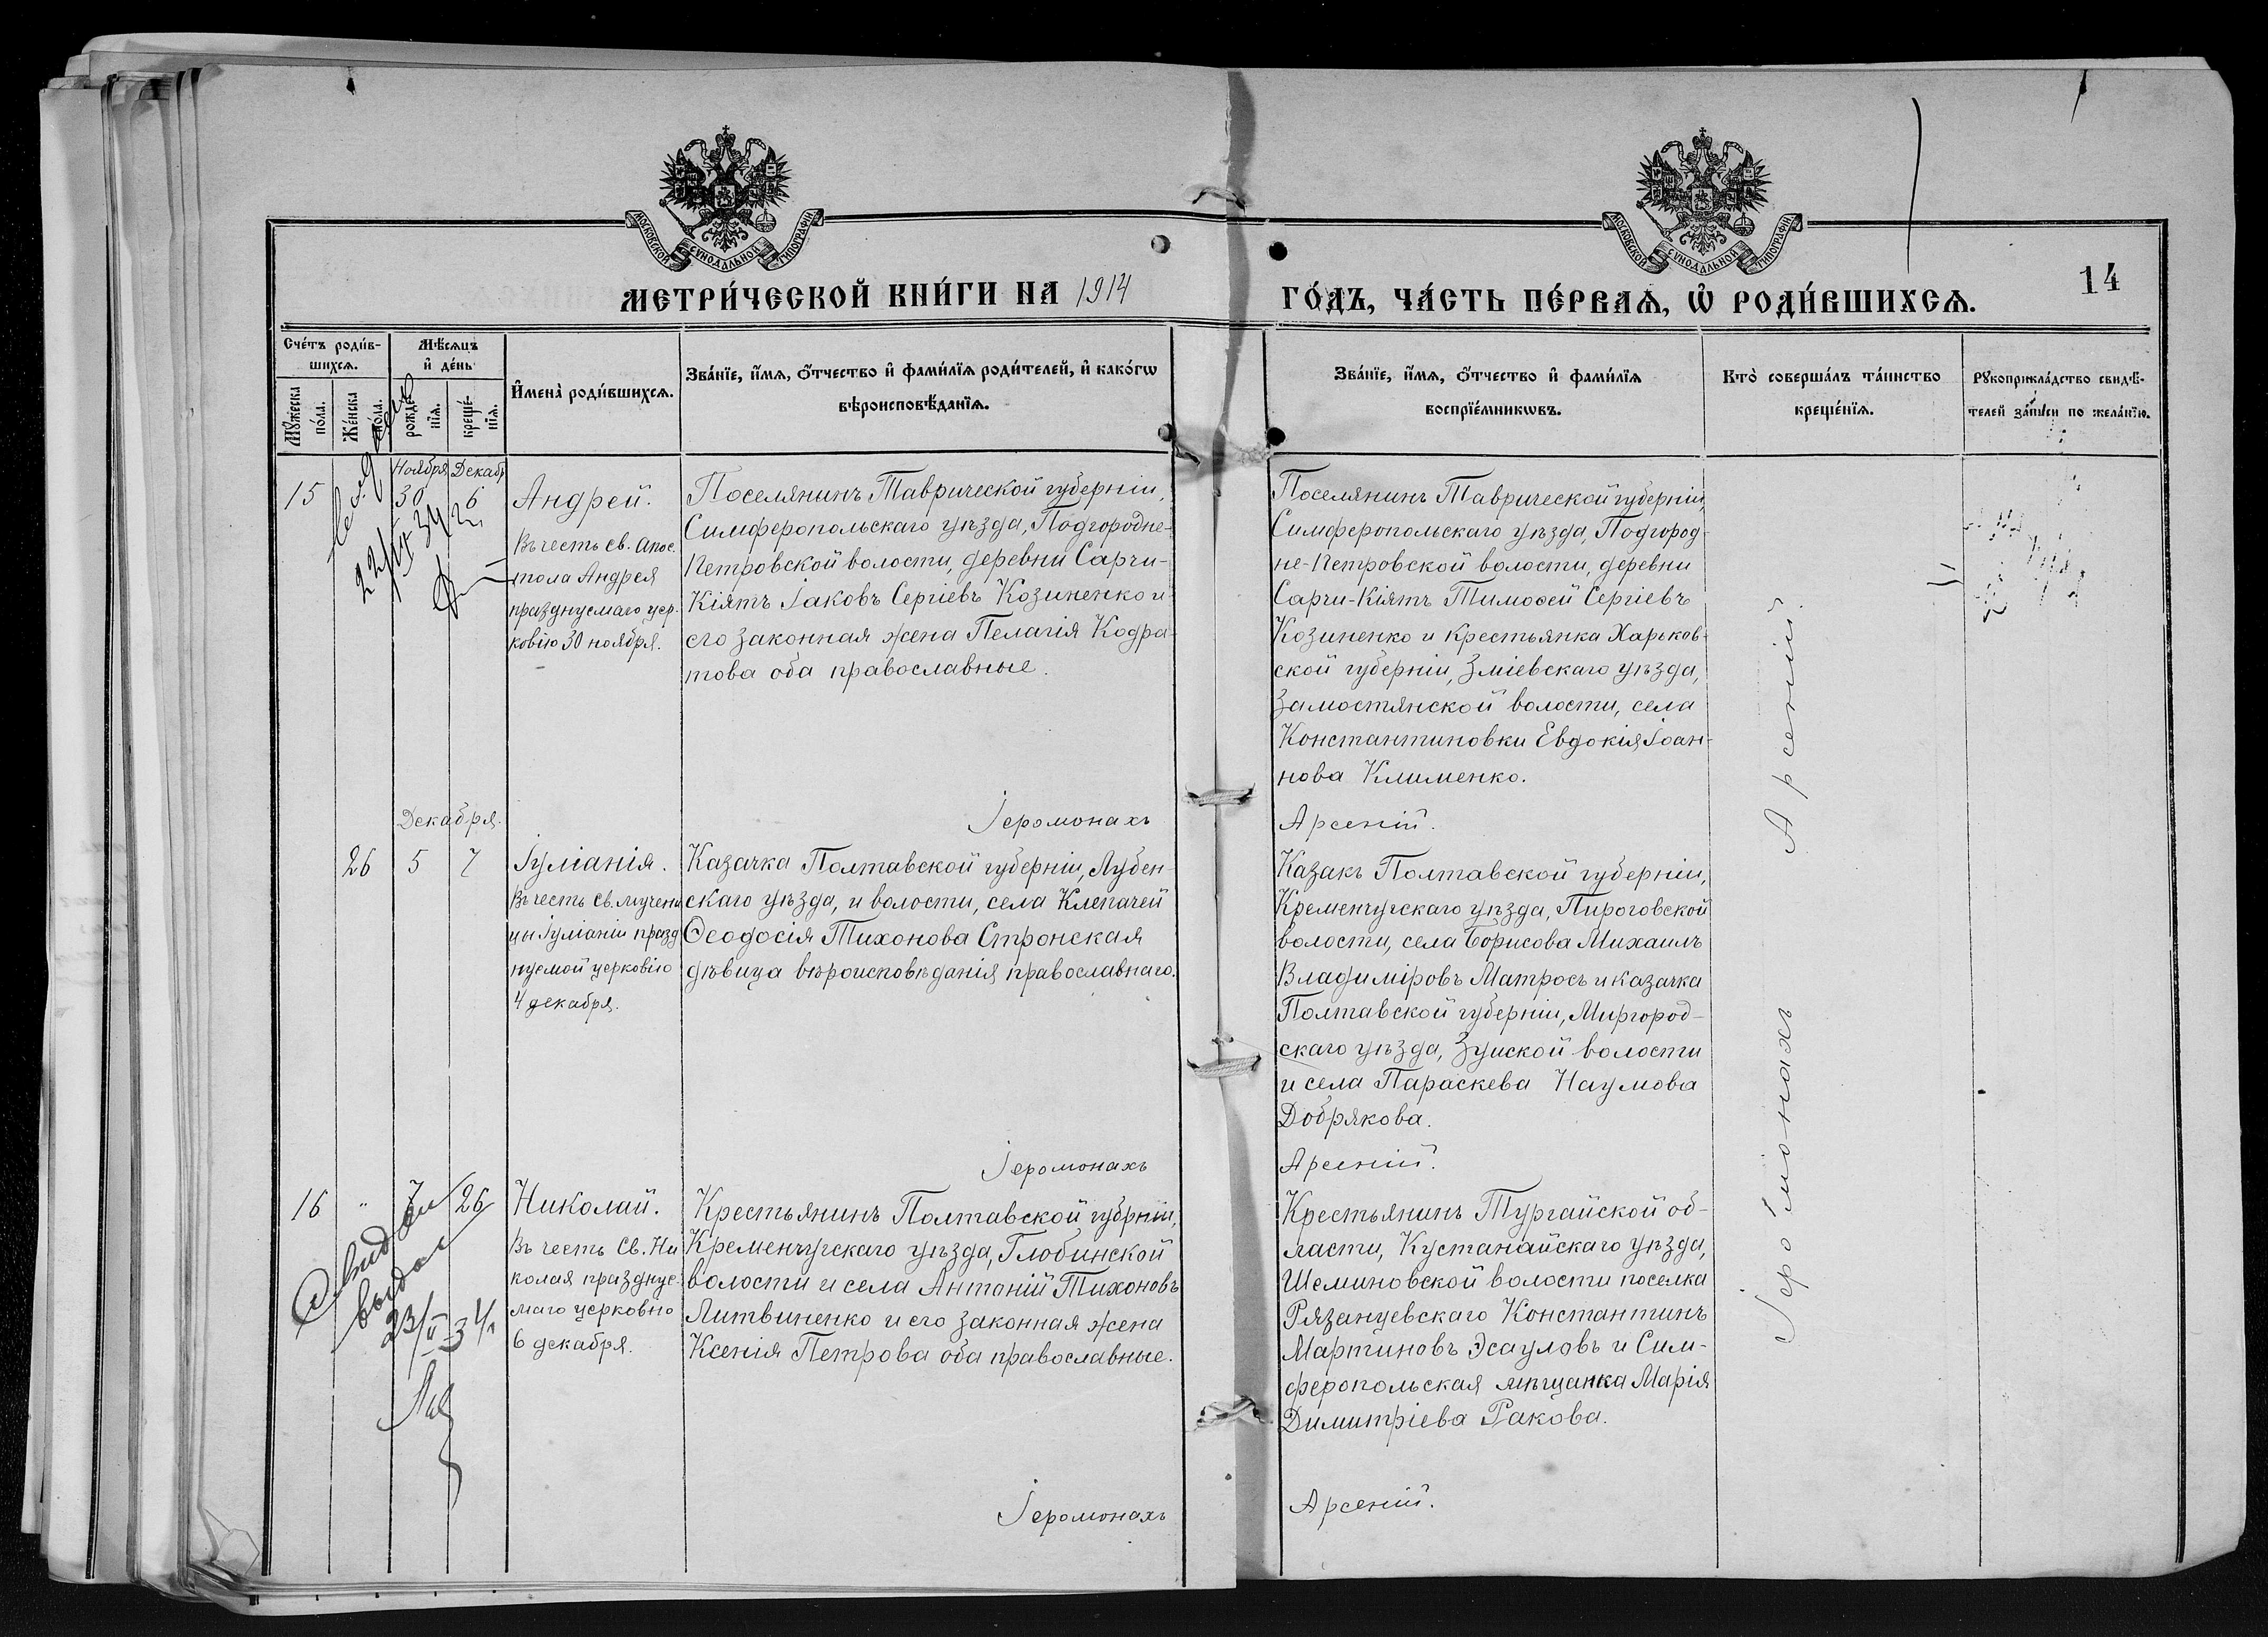 МОСКОВСКОЙ СѴНОДАЛЬНОЙ ТИПОГРАФІИ
МОСКОВСКОЙ СѴНОДАЛЬНОЙ ТИПОГРАФІИ
МЕТРИ́ЧЕСКОЙ КНИ́ГИ НА 1914
ГО́ДЪ, ЧА́СТЬ ПЕ́РВАѦ, Ѡ РОДИ́ВШИХСѦ.
14
Сче́тъ роди́в-
шихсѧ.
Мѣ́сѧцъ
и҆ де́нь
Мꙋ́жеска
пола.
Же́нска
по́ла.
рожде́-
нїѧ.
креще́-
нїѧ.
И҆мена̀ роди́вшихсѧ.
Зва́нїе, и҆́мѧ, ѻ҆́тчество и҆ фами́лїѧ роди́телей, и҆ како́гѡ
вѣроисповѣ́данїѧ.
Зва́нїе, и҆́мѧ, ѻ҆́тчество и҆ фами́лїѧ
воспрїе́мникѡвъ.
Кто̀ соверша́лъ та́инство
креще́нїѧ.
Рꙋкоприкла́дство свидѣ́-
телей за́писи по жела́нїю.
15
Ноября
30
Декаб
6
Андрей.
Въ честь св. апос-
тола Андрея
празднуемаго цер-
ковію 30 ноября.
Поселянинъ Таврической губерніи,
Симферопольскаго уѣзда, Подгородне-
Петровской волости, деревни Сарчи-
Кіятъ Іаковъ Сергіевъ Козиненко и
его законная жена Пелагія Кодра-
това оба православные.
Іеромонахъ
Поселянинъ Таврической губерніи,
Симферопольскаго уѣзда, Подгород-
не-Петровской волости, деревни
Сарчи-Кіятъ Тимоѳей Сергіевъ
Козиненко и крестьянка Харьков-
ской губерніи, Зміевскаго уѣзда,
Замостянской волости, села
Константиновки Евдокія Іоан-
нова Клименко.
Арсеній.
Декабря.
26
5
7
Іуліанія.
Въ честь св. мучени
цы Іуліаніи празд
нуемой церковію
4 декабря.
Казачка Полтавской губерніи, Лубен-
скаго уѣзда, и волости, села Клепачей
Ѳеодосія Тихонова Стронская
дѣвица вѣроисповѣданія православнаго.
Іеромонахъ
Казакъ Полтавской губерніи,
Кременчугскаго уѣзда, Пироговской
волости, села Борисова Михаилъ
Владиміровъ Матросъ и казачка
Полтавской губерніи, Миргород-
скаго уѣзда, Зуйской волости
и села Параскева Наумова
Добрякова.
Арсеній.
16
"
7
26
Николай.
Въ честь Св. Ни
колая празднуе-
маго церковію
6 декабря.
Крестьянинъ Полтавской губрніи,
Кременчугскаго уѣзда, Глобинской
волости и села Антоній Тихоновъ
Литвиненко и его законная жена
Ксенія Петрова оба православные.
Іеромонахъ
Крестьянинъ Тургайской об-
ласти, Кустанайскаго уѣзда,
Шеминовской волости поселка
Рязанцевскаго Константинъ
Мартиновъ Эсауловъ и Сим-
феропольская мѣщанка Марія
Димитріева Ракова.
Арсеній.
Іеромонахъ Арсеній.
22/IV 34
выдан
23/II 34